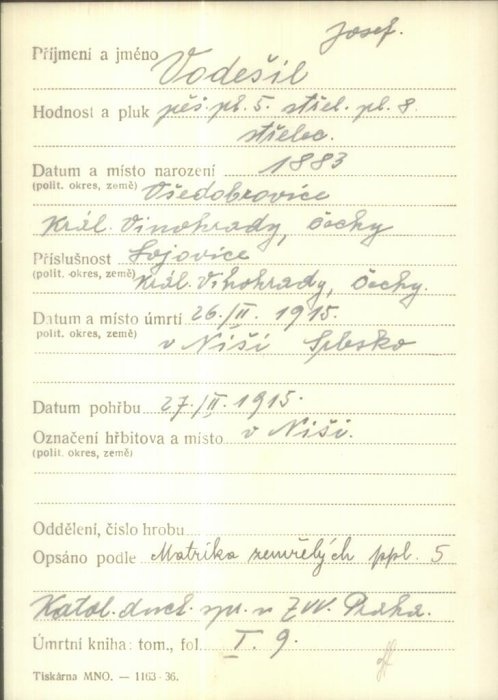 Josef.
Příjmení a jméno Vodešil
Hodnost a pluk pěš. pl. 5. střel. pl. 8.
střelec.
Datum a místo narození 1883
(polit. okres, země) Všedobrovice
Král. Vinohrady, Čechy
Příslušnost Sojovice
(polit. okres, země) Král. Vinohrady, Čechy.
Datum a místo úmrtí 26./II. 1915.
polit. okres, země) v Niši Srbsko
Datum pohřbu 27./II. 1915.
Označení hřbitova a místo v Niši.
(polit. okres, země)
Oddělení, číslo hrobu
Opsáno podle Matrika zemřelých ppl. 5
Katol. duch. spr. u ZVV. Praha.
Úmrtní kniha: tom., fol. I. 9.
Tiskárna MNO. — 1163-36.